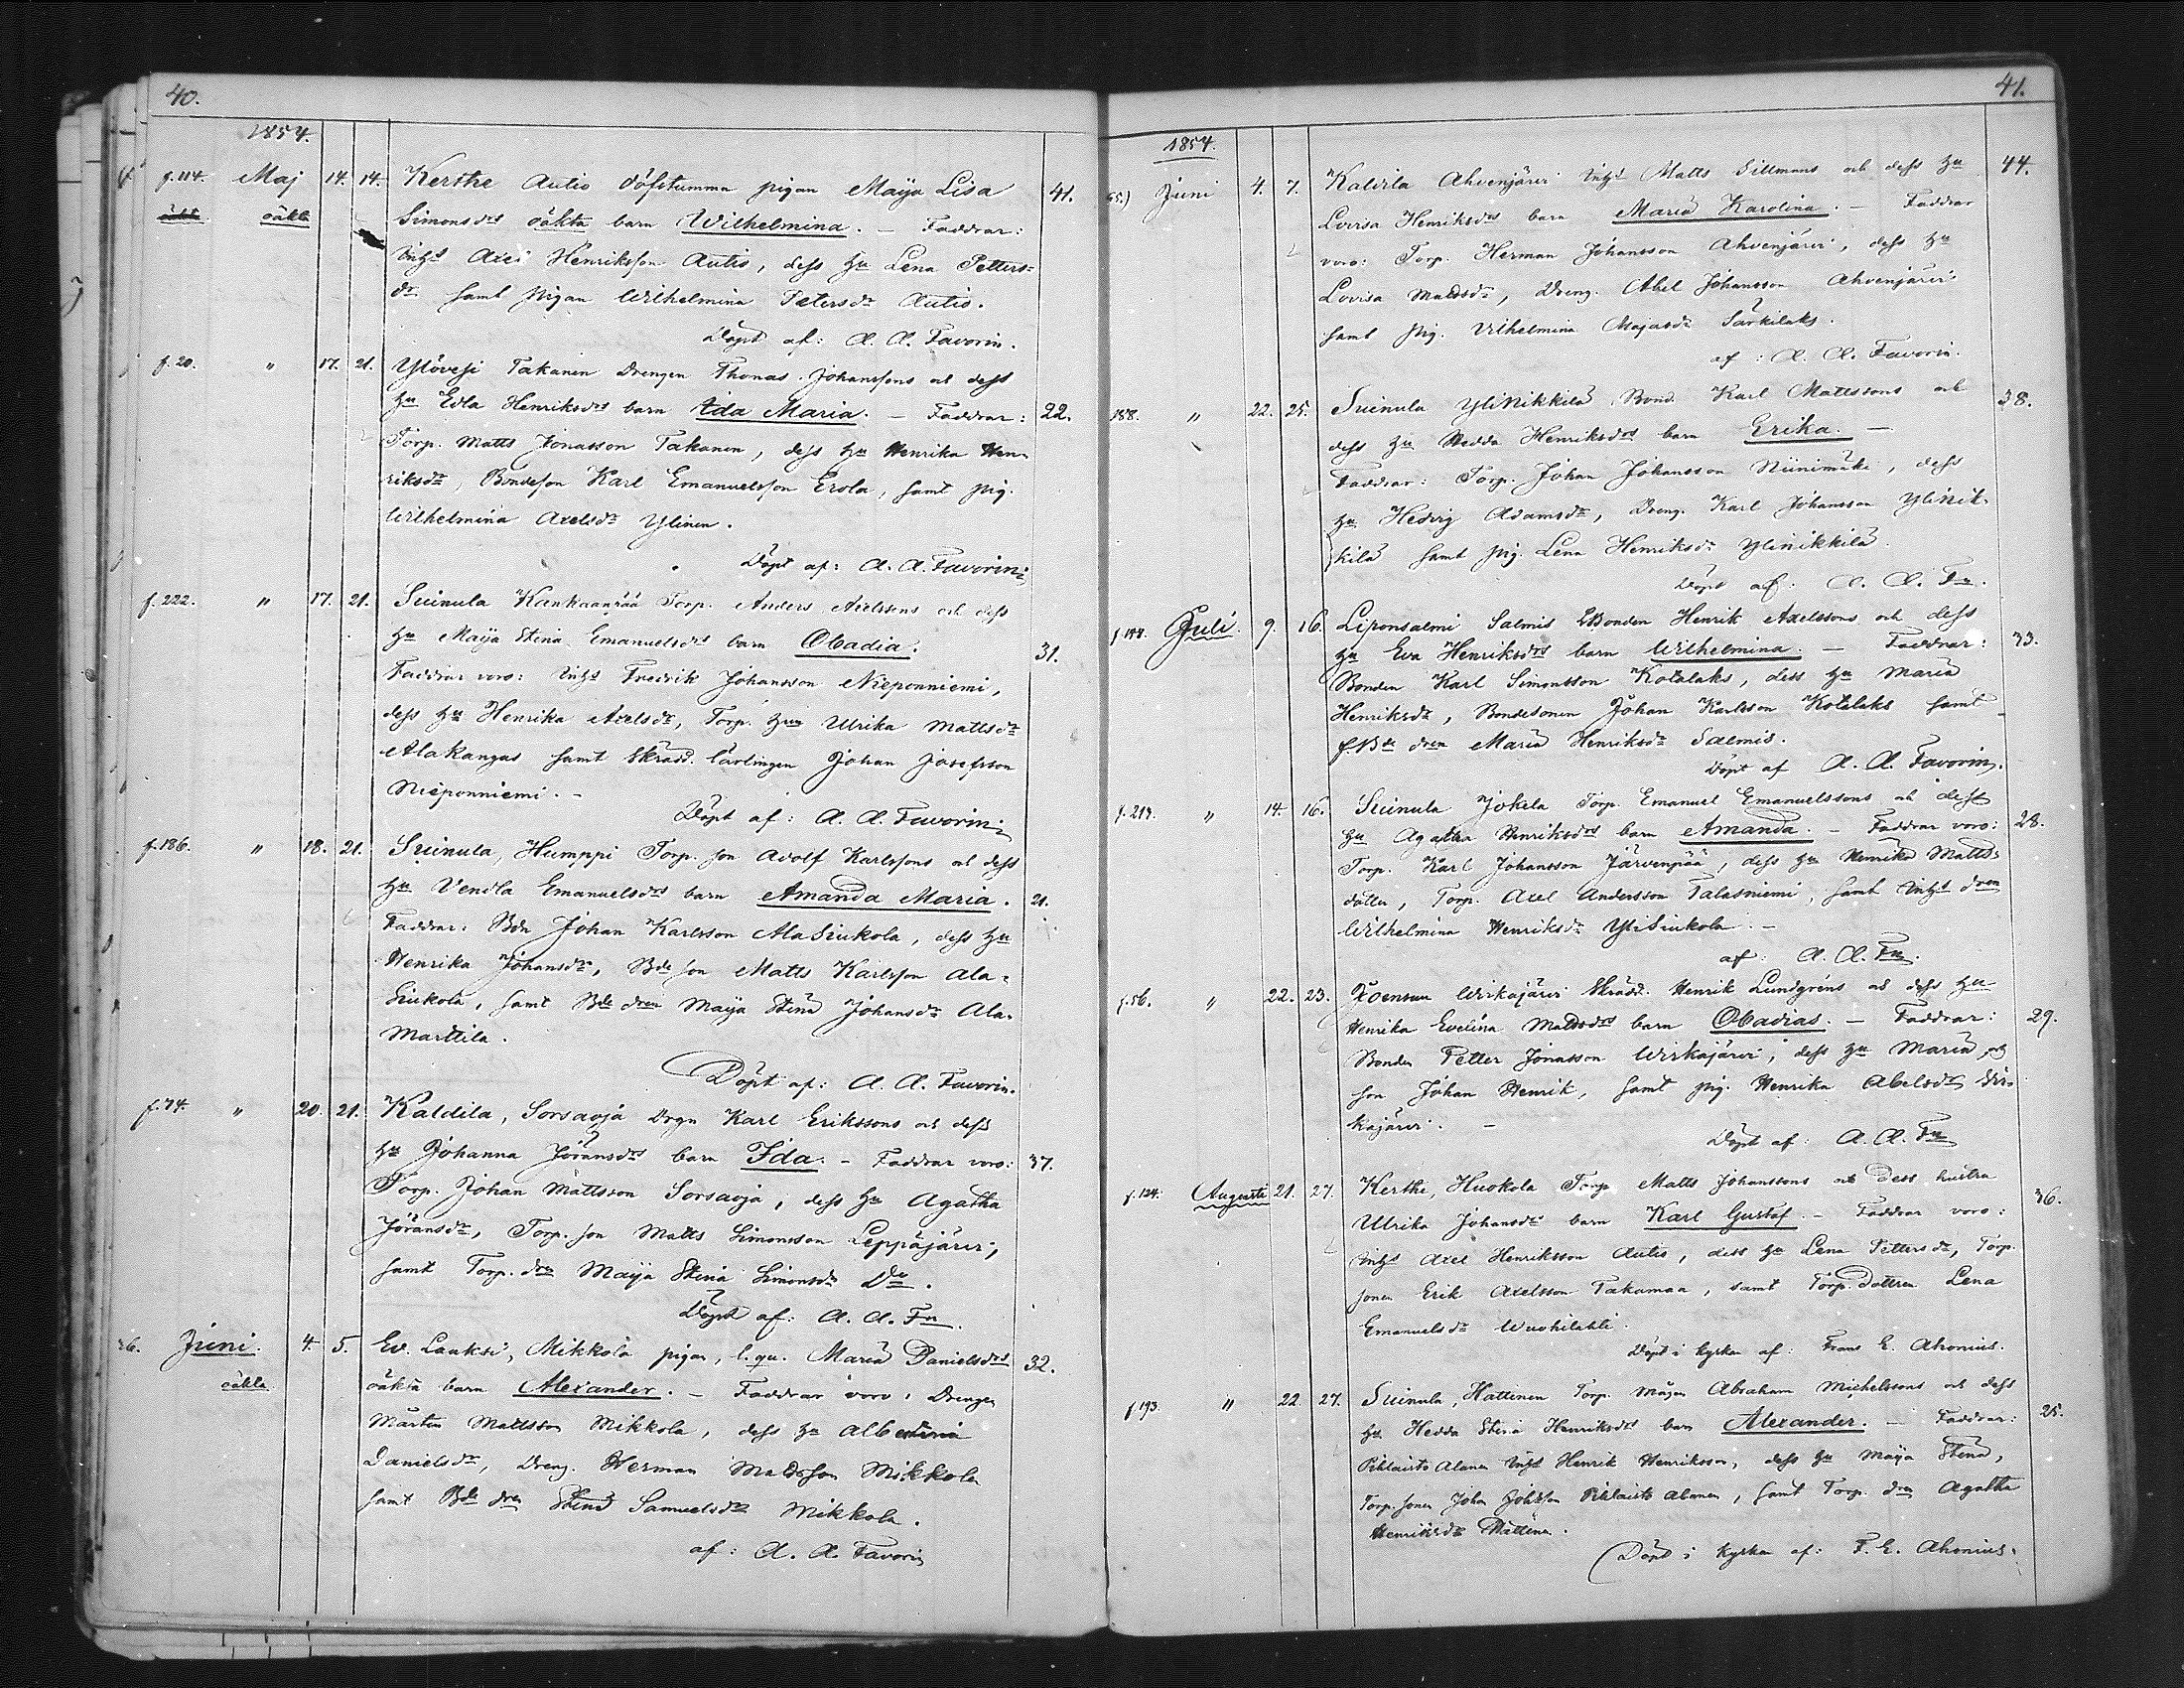 40.
1854.
f. 114. Maj 14. 14. Kerthe Autio döfstumma pigan Maija Lisa 41.
oäkta Simonsdrs oäkta barn Wilhelmina. — Faddrar:
Inhs Axel Henriksson Autio, dess hu Lena Petters-
dr samt pigan Wilhelmina Petersdr Autio.
Döpt af: A. A. Favorin.
f. 20. " 17. 21. Ylövesi Takanen Drengen Thomas Johanssons och dess
hu Edla Henriksdrs barn Ada Maria. — Faddrar: 22.
Torp. Matts Jonasson Takanen, dess hu Henrika Hen-
riksdr, Bondeson Karl Emanuelsson Erola, samt pig.
Wilhelmina Axelsdr Ylinen.
Döpt af: A. A. Favorin
f. 222. " 17. 21. Suinula Kankaanpää Torp. Anders Axelssons och dess
hu Maija Stina Emanuelsdrs barn Obadia. 31.
Faddrar voro: Inhs Fredrik Johansson Nieponniemi,
dess hu Henrika Axelsdr, Torp. hun Ulrika Mattsdr
Alakangas samt Skrädd. lärlingen Johan Josefsson
Nieponniemi. —
Döpt af: A. A. Favorin
f. 186. " 18. 21. Suinula, Humppi Torp. son Adolf Karlssons och dess
hu Vendla Emanuelsdrs barn Amanda Maria. 21.
Faddrar: Bdn Johan Karlsson AlaSiukola, dess hu
Henrika Johansdr, Bde son Matts Karlsson Ala-
Siukola, samt Bde dren Maija Stina Johansdr Ala-
Marttila.
Döpt af: A. A. Favorin.
f. 74. " 20. 21. Kaldila, Sorsaoja Drgn Karl Erikssons och dess
hu Johanna Göransdrs barn Ida. — Faddrar voro: 37.
Torp. Johan Mattsson Sorsaoja, dess hu Agatha
Göransdr, Torp. son Matts Simonsson Leppäjärvi,
samt Torp. dren Maija Stina Simonsdr Do.
Döpt af: A. A. Fn.
36. Juni. 4. 5. Ev. Laukko, Mikkola pigan, l. qu. Maria Danielsdrs 32.
oäkta oäkta barn Alexander. — Faddrar voro: Drengen
Mårten Mattsson Mikkola, dess hu Albertina
Danielsdr, Dreng. Herman Mattsson Mikkola
samt Bde dren Stina Samuelsdr Mikkola.
af: A. A. Favorin
41.
1854.
65.) Juni 4. 7. Kaldila Ahvenjärvi Inhs Matts Sillmans och dess hu 44.
Lovisa Henriksdrs barn Maria Karolina. — Faddrar
voro: Torp. Herman Johansson Ahvenjärvi, dess hu
Lovisa Mattsdr, Dreng. Abel Johansson Ahvenjärvi
samt pig. Vilhelmina Majasdr Särkilaks.
af: A. A. Favorin.
188. " 22. 25. Suinula YliNikkilä Bond. Karl Mattssons och 38.
dess hu Hedda Henriksdrs barn Erika. —
Faddrar: Torp. Johan Johansson Niinimäki, dess
hu Hedvig Adamsdr, Dreng. Karl Johansson YliNik-
kilä samt pig. Lena Henriksdr YliNikkilä.
Döpt af: A. A. Fn.
f. 148. Juli. 9. 16. Liponsalmi Salmis Bonden Henrik Axelssons och dess
hu Eva Henriksdrs barn Wilhelmina. — Faddrar: 33.
Bonden Karl Simonsson Kotalaks, dess hu Maria
Henriksdr, Bondesonen Johan Karlsson Kotalaks samt
f. Bde dren Maria Henriksdr Salmis.
Döpt af A. A. Favorin.
f. 219. " 14. 16. Suinula Jokela Torp. Emanuel Emanuelssons och dess
hu Agatha Henriksdrs barn Amanda. — Faddrar voro: 28.
Torp. Karl Johansson Järvenpää, dess hu Henrika Matts-
dotter, Torp. Axel Andersson Talasniemi, samt Inhs dren
Wilhelmina Henriksdr YliSiukola. —
af: A. A. Fn.
f. 56. " 22. 23. Joensuu Wirkajärvi Skrädd. Henrik Lundgréns och dess hu
Henrika Evelina Mattsdrs barn Obadias. — Faddrar: 29.
Bonden Petter Jonasson Wirkajärvi, dess hu Maria, och
son Johan Henrik, samt pig. Henrika Abelsdr Wir-
kajärvi. —
Döpt af: A. A. Fn
f. 124. Augusti 21. 27. Kerthe, Huokola Torp. Matts Johanssons och dess hustru 36.
Ulrika Johansdrs barn Karl Gustaf. — Faddrar voro:
Inhs Axel Henriksson Autio, dess hu Lena Pettersdr, Torp.
sonen Erik Axelsson Takamaa, samt Torp. dottren Lena
Emanuelsdr Wuohilahti.
Döpt i kyrkan af: Frans E. Ahonius.
f. 193. " 22. 27. Suinula, Hattinen Torp. mågen Abraham Michelssons och dess
hu Hedda Stina Henriksdrs barn Alexander. — Faddrar: 25.
Pihlaisto Alanen Inhs Henrik Henriksson, dess hu Maija Stina,
Torp. sonen Johan Johansson Pihlaisto Alanen, samt Torp. dren Agatha
Henriksdr Hattinen.
Döpt i kyrkan af: F. E. Ahonius.